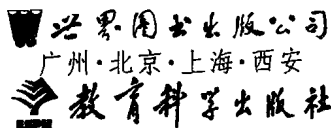 世界图书出版公司
广州·北京·上海·西安
教育科学出版社